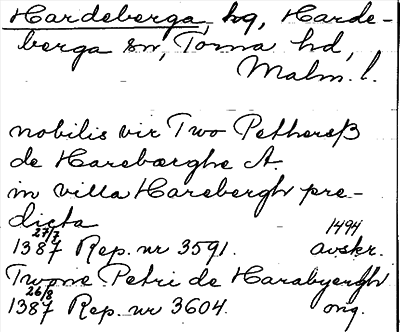 Hardeberga, hg, Harde-
berga sn, Torna hd,
Malm. l.
nobilis vir Two Petherß
de Harebærghe A.
in villa Harebergh pre-
dicta
27/7 1494
1387 Rep. nr 3591. avskr.
Twone Petri de Harabyergh
26/8
1387 Rep. nr 3604. orig.